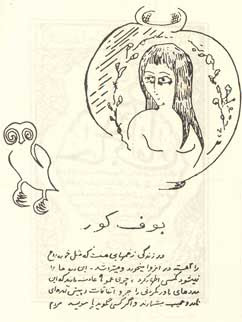 بوف کور
در زندگی زخمهایی هست که مثل خوره روح
را آهسته در انزوا میخورد و میتراشد - این دردها را
نمیشود بکسی اظهار کرد، چون عموما عادت دارند که این
دردهای باور نکردنی را جزو اتفاقات و پیش آمدهای
نادر و عجیب بشمارند و اگر کسی بگوید یا بنویسد مردم